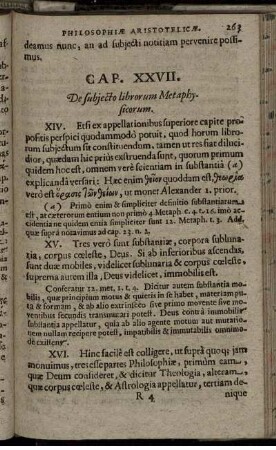 PHILOSOPHIÆ ARISTOTELICÆ. 263
deamus nunc, an ad subjecti notitiam pervenire possi-
mus.
CAP. XXVII.
De subjecto librorum Metaphy-
sicorum.
XIV. Etsi ex appellationibus superiore capite pro-
positis perspici quodammodo potuit, quod horum libro-
rum subjectum sit constituendum, tamen ut res fiat diluci-
dior, quædam hic prius exstruenda sunt, quorum primum
quidem hoc est, omnem verè scientiam in substantiâ (a)
explicandâ versari: Hæc enim quoddam est,
verò est ut monet Alexander 1. prior.
(a) Primò enim & simpliciter definitio substantiarum
est, at cæterorum entium non primò 4 Metaph. c. 4. t. 16. imò ac-
cidentia ne quidem entia simpliciter sunt 12. Metaph. t. 3. Adde
quæ suprà notavimus ad cap. 23. n. 2.
XV. Tres verò sunt substantiæ, corpora subluna-
ria, corpus cœleste, Deus. Si ab inferioribus ascendas,
sunt duæ mobiles, videlicet sublunaris & corpus cœleste,
suprema autem illa, Deus videlicet, immobilis est.
Conferatur 12. met. t. 1. 4. Dicitur autem substantia mo-
bilis, quæ principium motus & quietis in se habet, materiam pu-
ta & formam; & ab alio extrinseco sive primo movente sive mo-
ventibus secundis transmutari potest. Deus contrà immobilis
substantia appellatur, quia ab alio agente motum aut mutatio-
tem nullam recipere potest, impatibilis & immutabilis omnimo-
dè existens.
XVI. Hinc facilè est colligere, ut suprà quoque jam
monuimus, tres esse partes Philosophiæ, primam eam,
quæ Deum consideret, & dicitur Theologia, alteram,
quæ corpus cœleste, & Astrologia appellatur, tertiam de-
R 4 nique